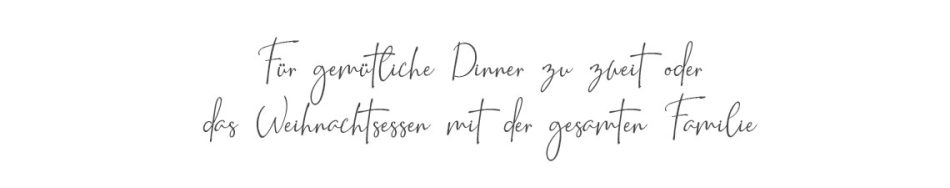 Für gemütliche Dinner zu zweit oder
das Weihnachtsessen mit der gesamten Familie